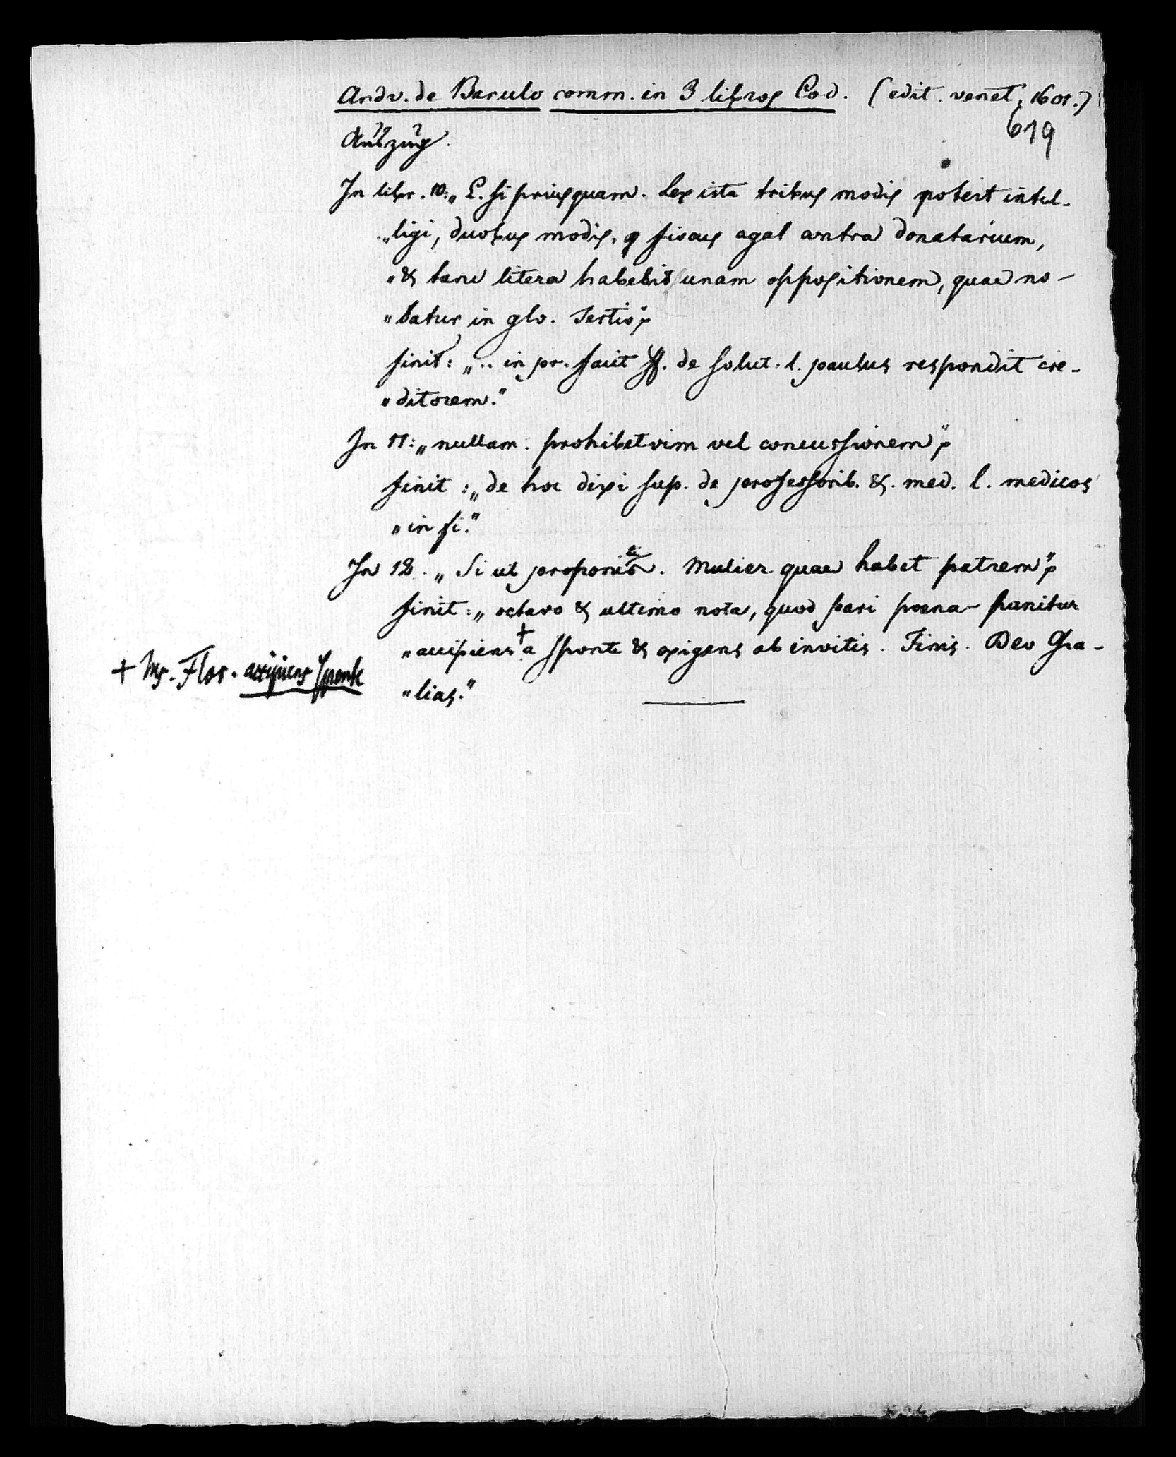 Andr. de Barulo comm. in 3 libros Cod. (edit. venet. 1601.)
619
Auszug.
In libr. 10: „L. si priusquam. lex ista tribus modis potest intel-
„ligi, duobus modis, q fiscus agat contra donatarium,
„& tunc litera habebit unam oppositionem, quae no-
„tatur in glo. Tertio“;
finit: „.. in pr. facit ff. de solut. l. paulus respondit cre-
„ditorem.“
In 11: „nullam. prohibet vim vel concussionem“;
finit: „de hoc dixi sup. de professorib. &. med. l. medicos
„in fi.“
In 12. „Si ut proponis. Mulier quae habet patrem“;
finit: „octavo & ultimo nota, quod pari poena punitur
„accipiens + a sponte & exigens ab invitis. Finis. Deo Gra-
+ Ms. Flor. accipiens sponte
„tias.“